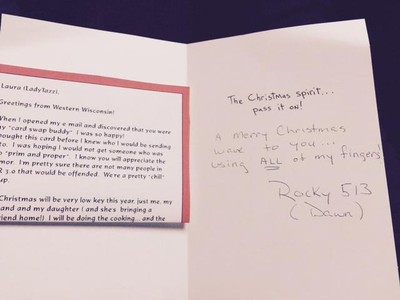 Laura (LadyTazz).
reetings from Western Wisconsin!
When I opened my e.mail and discovered that you were
my "card swap buddy" I was so happy!
ought this card before I knew who I would be sending
to. I was hoping I would not get someone who was
o "prim and proper". I know you will appreciate the
mor. I'm pretty sure there are not many people in
R 3.0 that would be offended. We're a pretty "chill"
up.
Christmas will be very low key this year, just me, my
and and my daughter ( and she's bringing a
riend home)! I will be doing the cooking...and the
The Christmas spirit....
pass it on!
A Merry Christmas
wave to you...
using ALL of my fingers!
Rocky 513
(Dawn)